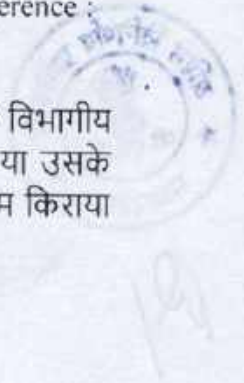 erence :
विभागीय
या उसके
म किराया